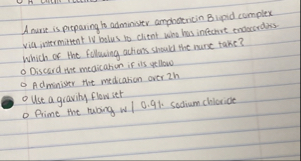 A nurse is preparing to administer amphotericin B lipid complex
via intermittent IV bolus to client who has infective endocarditis
Which of the following actions should the nurse take?
o Discard the medication if its yellow
o Administer the medication over 2h
o Use a gravity flow set
o Prime the tubing w/ 0.9% sodium chloride